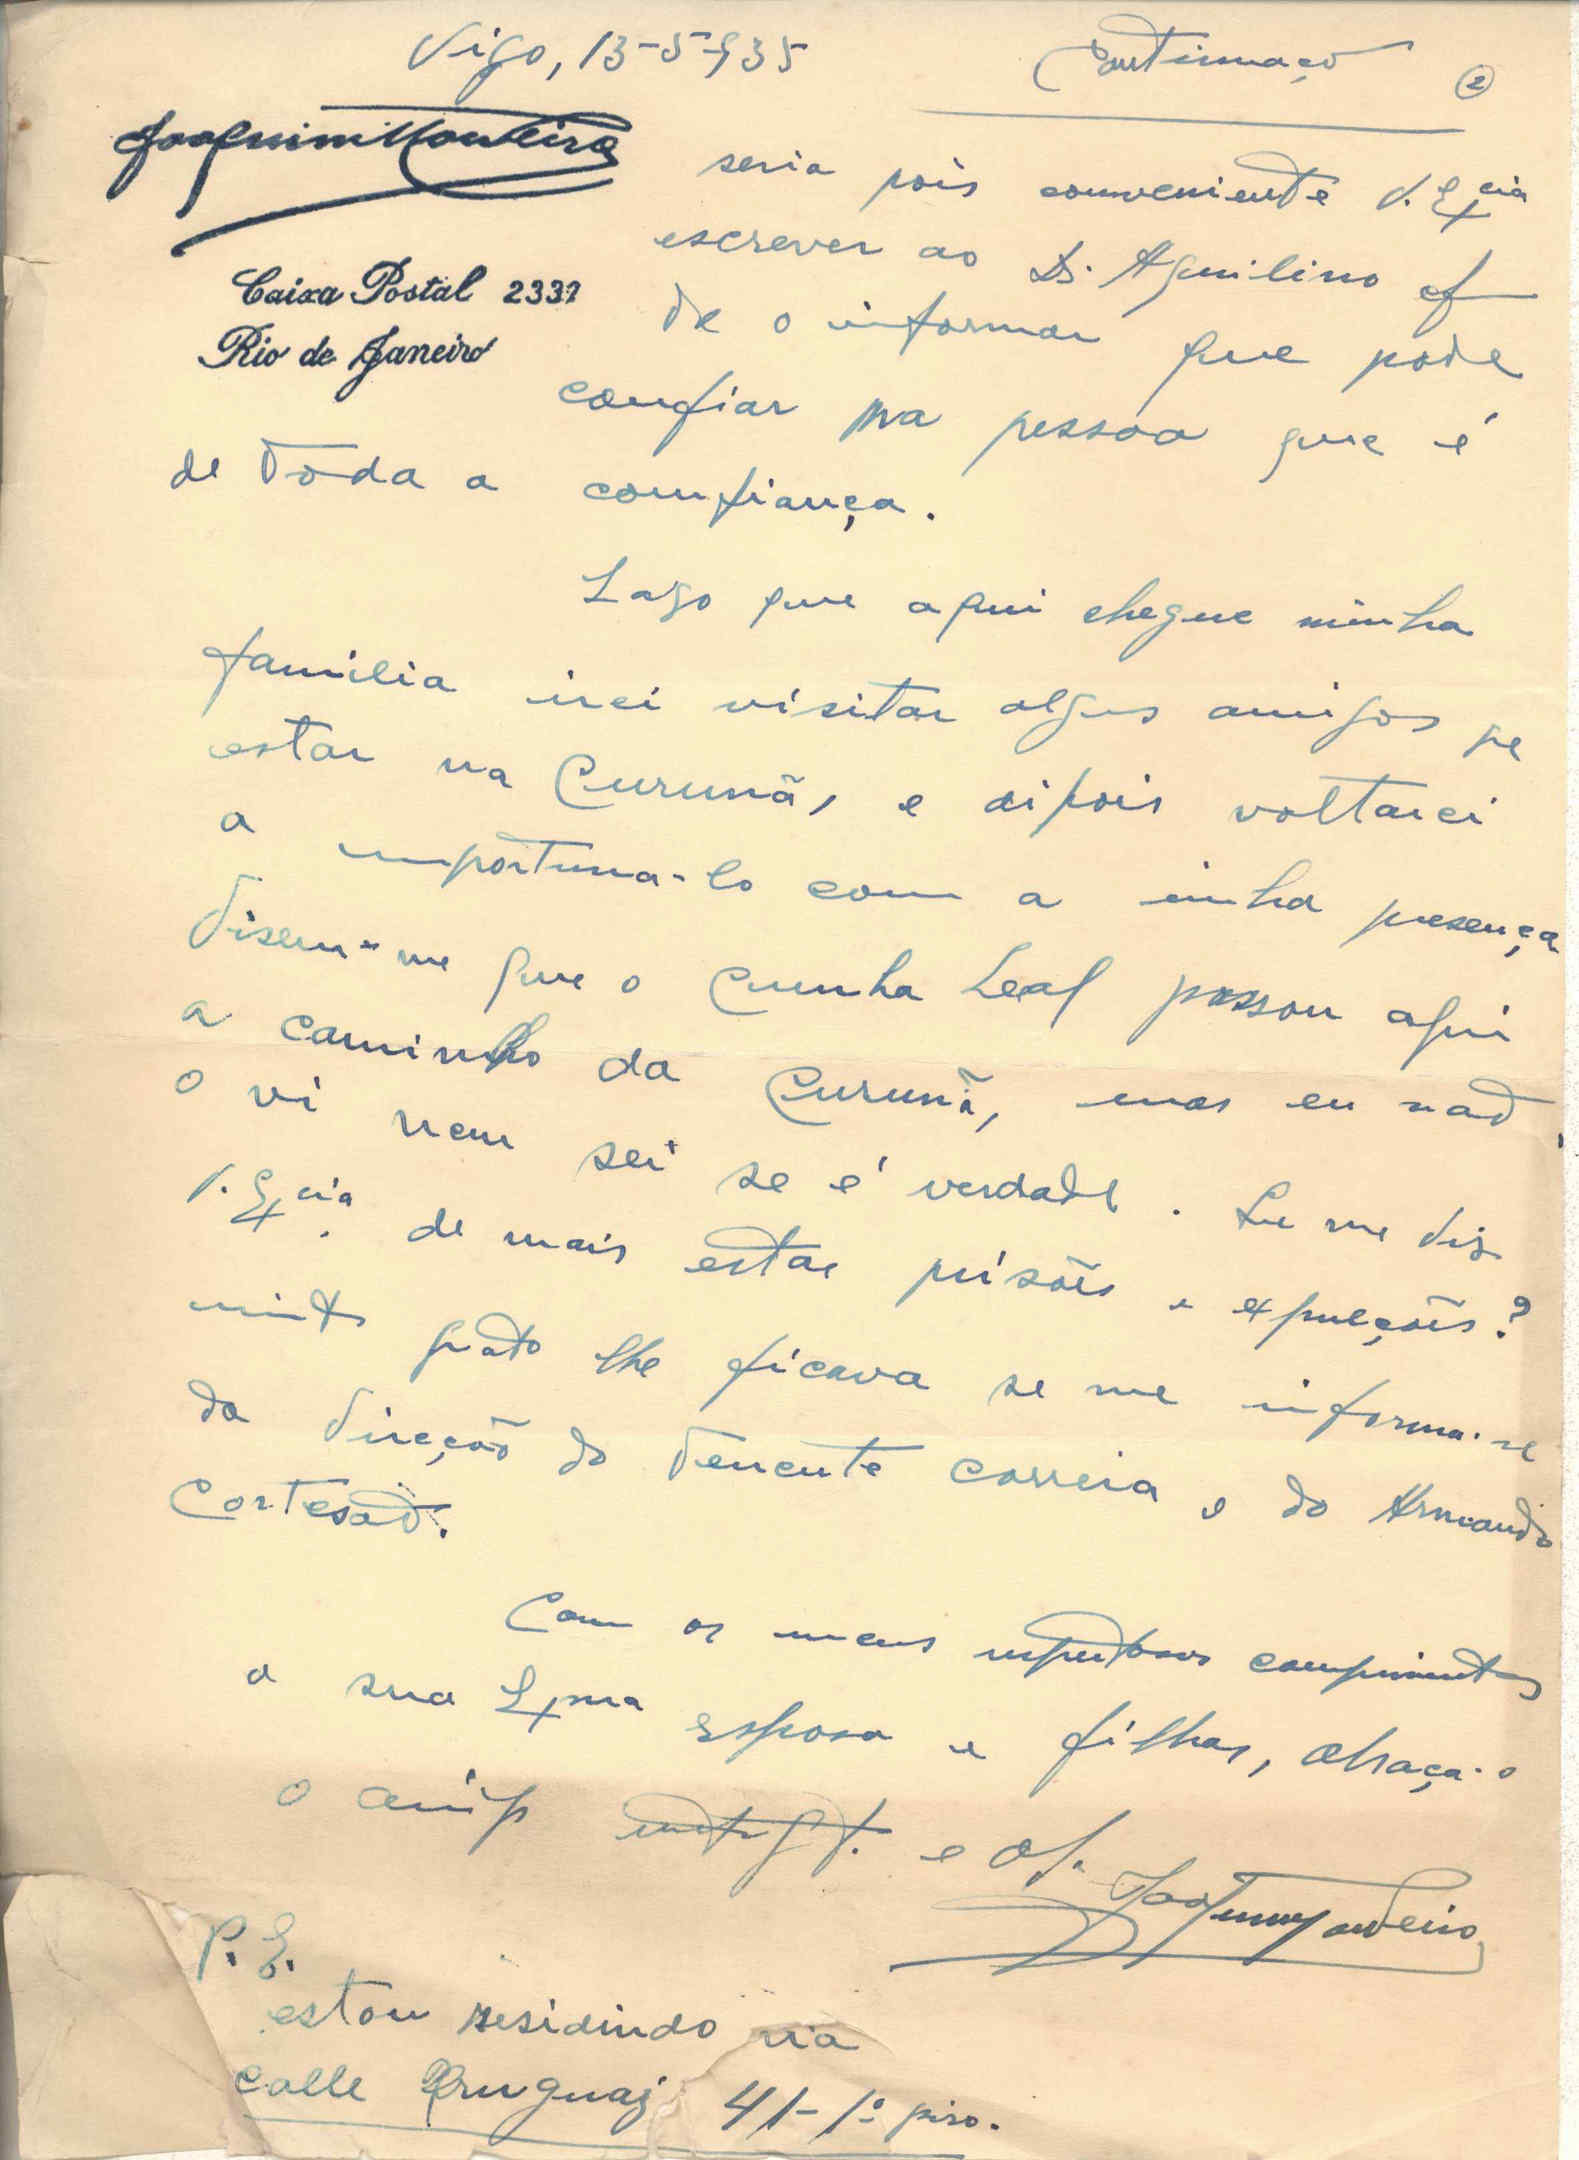 Vigo, 13-5-935
Continuaço
2
Joaquim Monteiro
Caixa Postal 2332
Rio de Janeiro
seria pois conveniente V. Excia
escrever ao Dr. Aquilino af
de o informar que pode
confiar na pessoa que é
de toda a comfiança.
Logo que aqui chegue minha
familia irei visitar algus amigos que
estar na Curunã, e dipois voltarei
a importuna-lo com a minha presença
Disem-me que o Cunha Leal passou aqui
a caminho da Curunã, mas eu naõ
o vi nem sei se é verdade. Que me diz
V. Excia. de mais estas prisões e expulções?
muito grato lhe ficava se me informa-se
da direcção do Tenente Correia e do Armando
Cortesaõ.
Com os meus respeitosos comprimentos
a sua Exma Esposa e filhas, abraça-o
o amigo mto gto. e af.
Joaquim Monteiro
P. E.
estou residindo na
calle Uruguaj 41-1º piso.